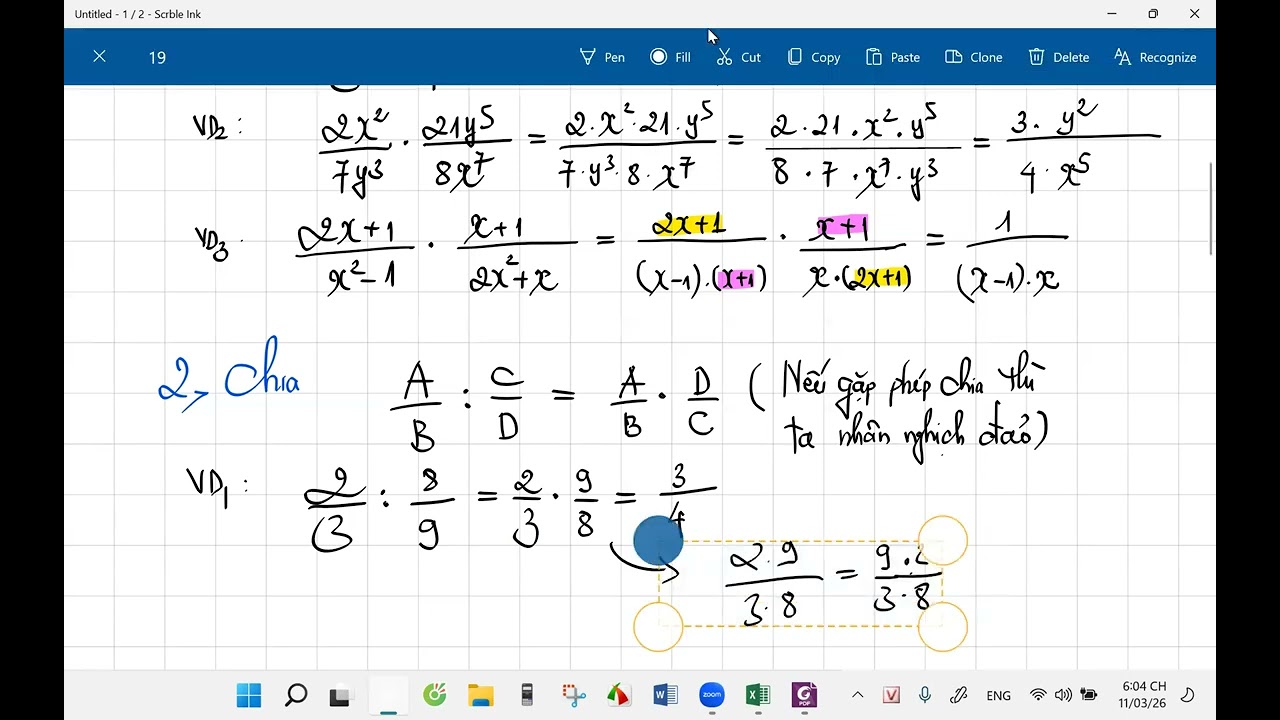 Untitled - 1 / 2 - Scrble Ink
19 Pen Fill Cut Copy Paste Clone Delete Recognize
VD2 : 2x²/7y³ · 21y⁵/8x⁷ = 2·x²·21·y⁵/7·y³·8·x⁷ = 2·21·x²·y⁵/8·7·x⁷·y³ = 3·y²/4·x⁵
VD3 · 2x+1/x²-1 · x+1/2x²+x = 2x+1/(x-1)·(x+1) · x+1/x·(2x+1) = 1/(x-1)·x
2, Chia A/B : C/D = A/B · D/C ( Nếu gặp phép chia thì
ta nhân nghịch đảo)
VD1 : 2/3 : 8/9 = 2/3 · 9/8 = 3/4
2·9/3·8 = 9·2/3·8
zoom
PDF
ENG
6:04 CH
11/03/26